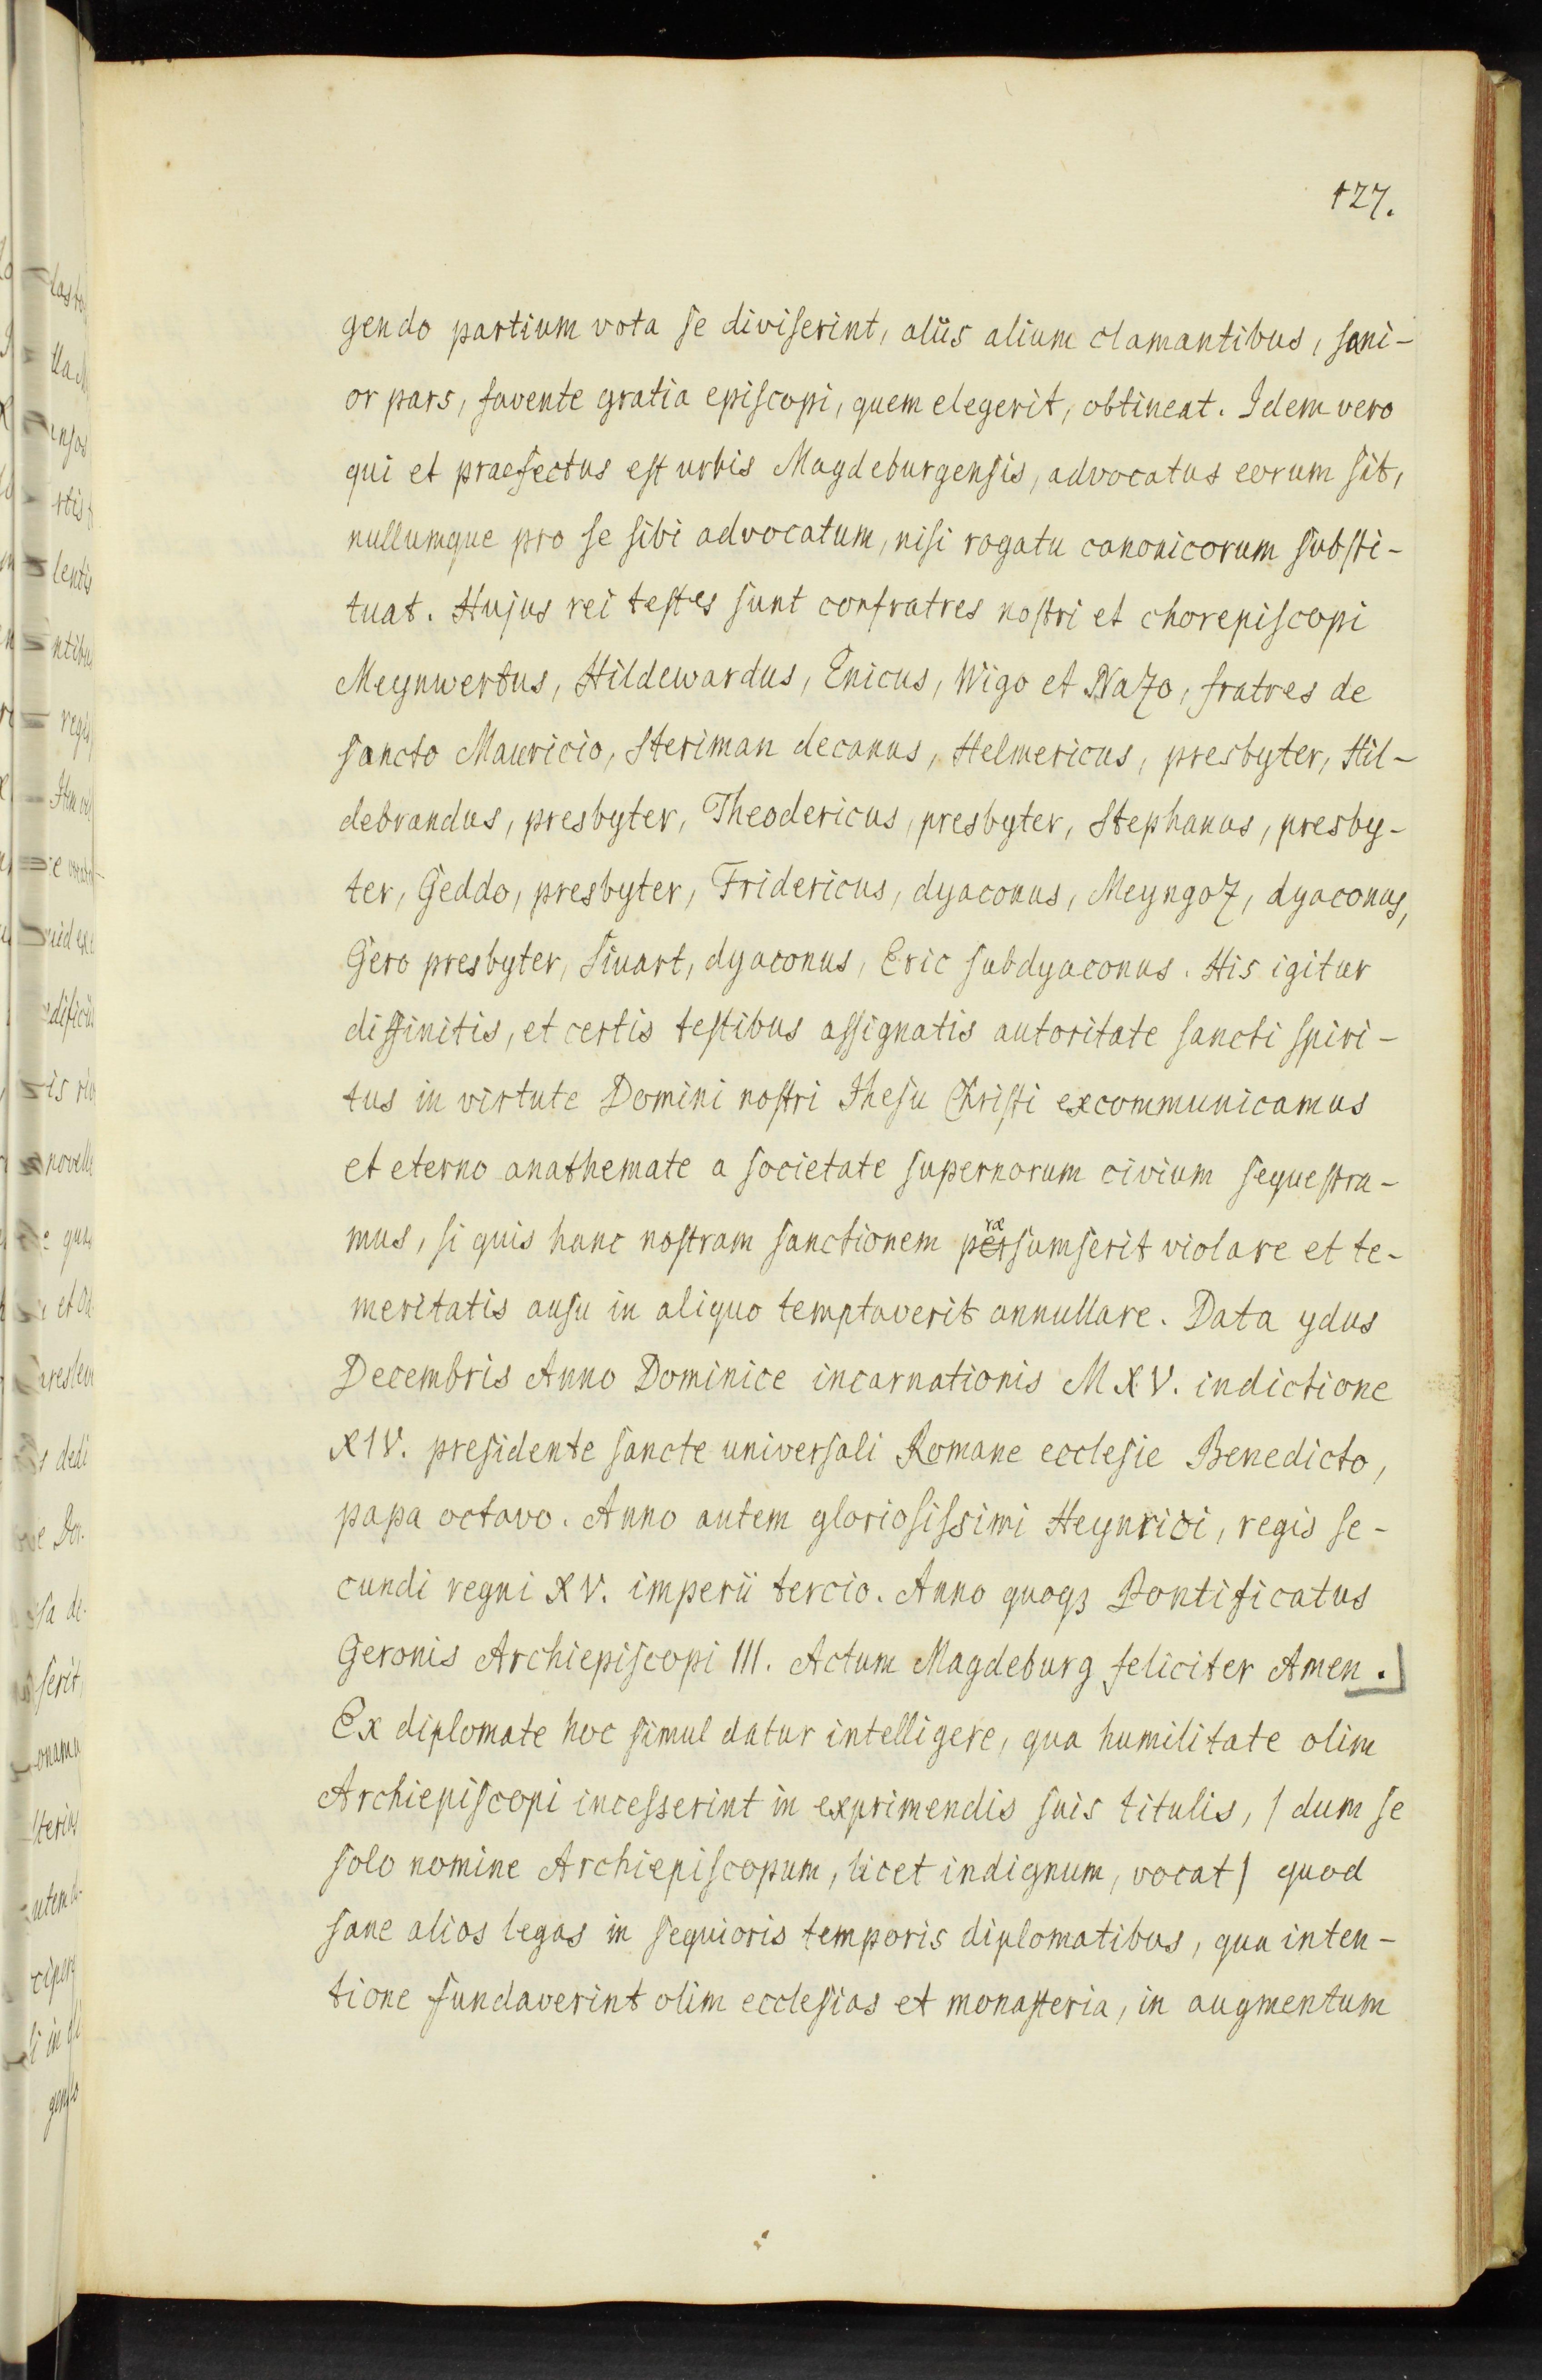 127.
gendo partium vota se diviserint, aliis alium clamantibus, sani-
or pars, favente gratia episcopi, quem elegerit, obtineat. Idem vero
qui et praefectus est urbis Magdeburgensis, advocatus eorum sit,
nullumque pro se sibi advocatum, nisi rogatu canonicorum substi-
tuat. Hujus rei testes sunt confratres nostri et chorepiscopi
Meynwertus, Hildewardus, Enicus, Wigo et Nazo, fratres de
sancto Mauricio, Heriman decanus, Helmericus, presbyter, Hil-
debrandus, presbyter, Theodericus, presbyter, Stephanus, presby-
ter, Geddo, presbyter, Fridericus, dyaconus, Meyngoz, dyaconus,
Gero presbyter, Siuart, dyaconus, Eric subdyaconus. His igitur
diffinitis, et certis testibus assignatis autoritate sancti spiri-
tus in virtute Domini nostri Jhesu Christi excommunicamus
et eterno anathemate a societate supernorum civium sequestra-
mus, si quis hanc nostram sanctionem præsumserit violare et te-
meritatis ausu in aliquo temptaverit annullare. Data ydus
Decembris Anno Dominice incarnationis MXV. indictione
XIV. presidente sancte universali Romane ecclesie Benedicto,
papa octavo. Anno autem gloriosissimi Heynrici, regis se-
cundi regni XV. imperii tercio. Anno quoqꝫ Pontificatus
Geronis Archiepiscopi III. Actum Magdeburg feliciter Amen.]
Ex diplomate hoc simul datur intelligere, qua humilitate olim
Archiepiscopi incesserint in exprimendis suis titulis, (dum se
solo nomine Archiepiscopum, licet indignum, vocat) quod
sane alias legas in sequioris temporis diplomatibus, qua inten-
tione fundaverint olim ecclesias et monasteria, in augmentum